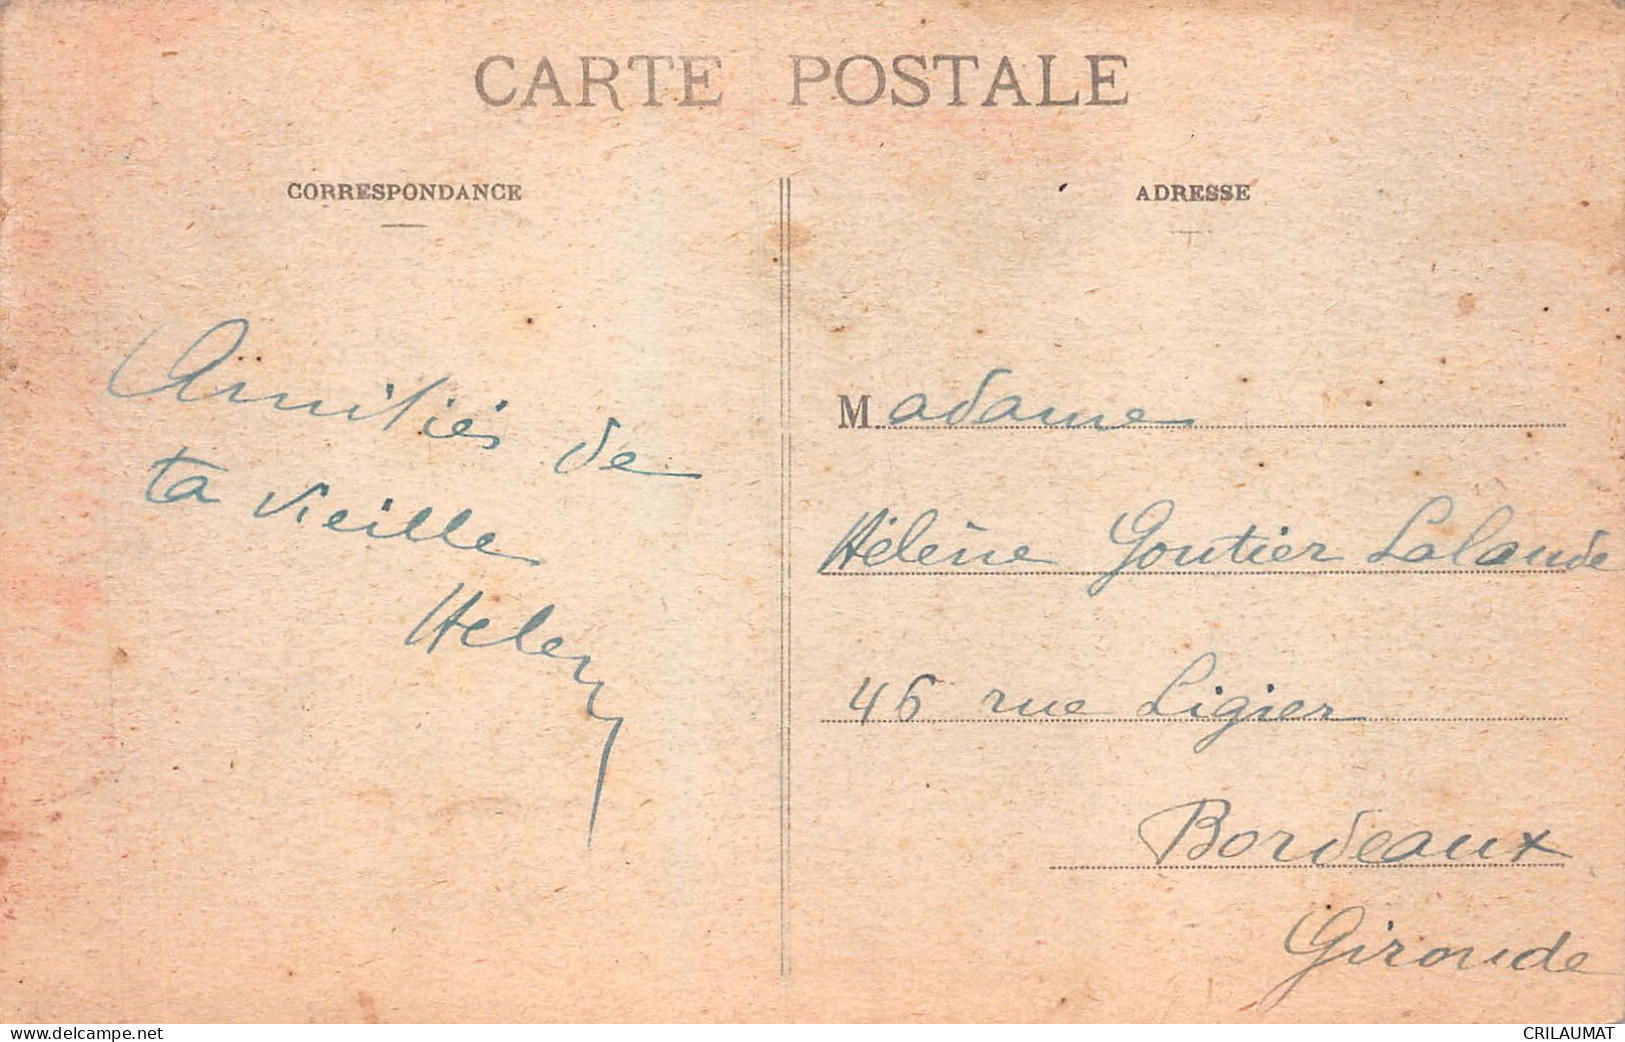 CARTE POSTALE
CORRESPONDANCE
Amitiés de
ta vieille
Heleny
ADRESSE
Madame
Hélène Goutier Lalande
46 rue Ligier
Bordeaux
Gironde
www.delcampe.net
CRILAUMAT